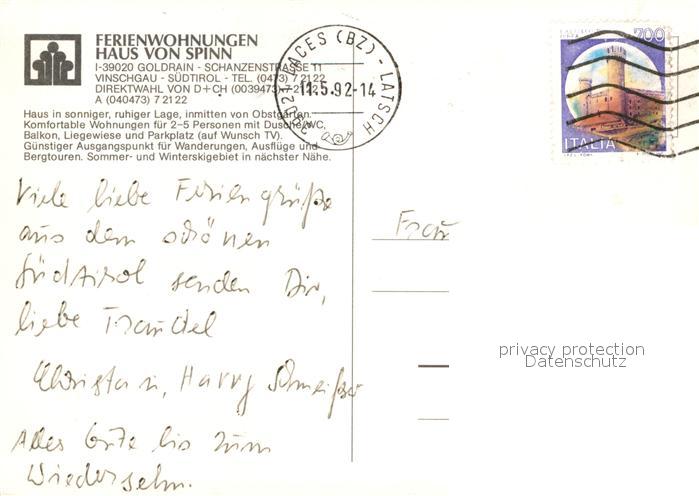 FERIENWOHNUNGEN
HAUS VON SPINN
I-39020 GOLDRAIN - SCHANZENSTRASSE 11
VINSCHGAU - SÜDTIROL - TEL. (0473) 7 21 22
DIREKTWAHL VON D+CH (0039473) 7 21 22
A (040473) 7 21 22
Haus in sonniger, ruhiger Lage, inmitten von Obstgärten.
Komfortable Wohnungen für 2-5 Personen mit Dusche/WC,
Balkon, Liegewiese und Parkplatz (auf Wunsch TV).
Günstiger Ausgangspunkt für Wanderungen, Ausflüge und
Bergtouren. Sommer- und Winterskigebiet in nächster Nähe.
LACES (BZ) - LATSCH
11.5.92-14
700
ITALIA
Viele liebe Feriengrüße
aus dem schönen
Südtirol senden Dir,
liebe Traudel
Christa u. Harry
Alles Gute bis zum
Wiedersehn.
Frau
privacy protection
Datenschutz